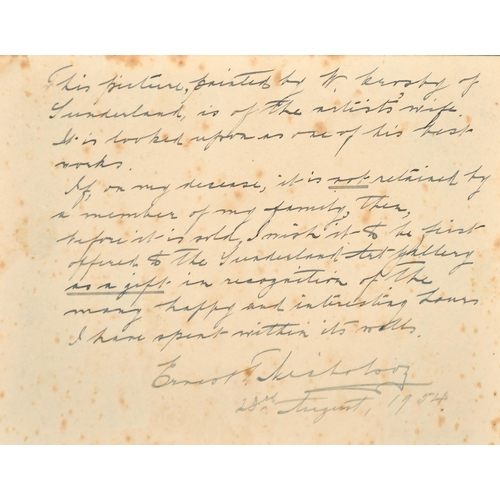 This picture, painted by W Crosby of
Sunderland, is of the artists' wife.
It is looked upon as one of his best
works.
If, on my decease, it is not retained by
a member of my family, then,
before it is sold, I wish it to be first
offered to the Sunderland Art Gallery
as a gift in recognition of the
many happy and interesting hours
I have spent within its walls.
Ernest
28th August, 1954.